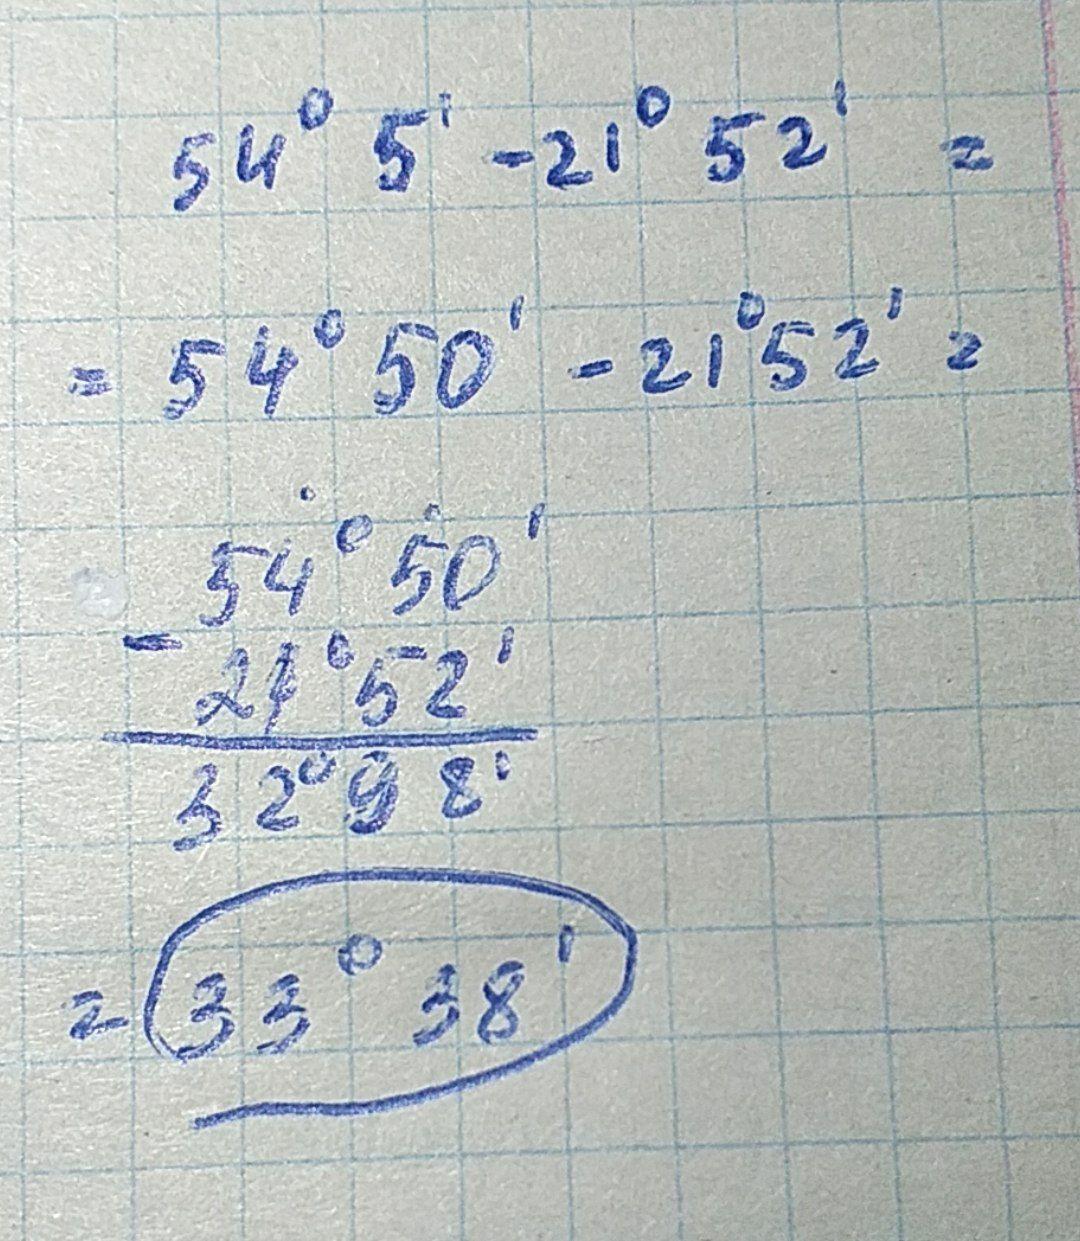 54° 5' - 21° 52' =
= 54° 50' - 21° 52' =
54° 50'
-
21° 52'
32° 98'
= 33° 38'